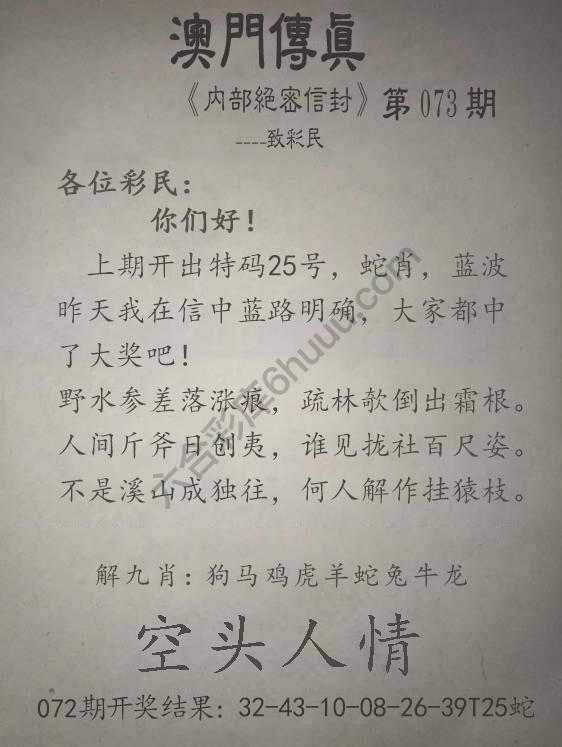 澳門傳眞
《内部絕密信封》第073期
----致彩民
各位彩民：
你们好！
上期开出特码25号，蛇肖，蓝波
昨天我在信中蓝路明确，大家都中
了大奖吧！
野水参差落涨痕，疏林欹倒出霜根。
人间斤斧日创夷，谁见拢社百尺姿。
不是溪山成独往，何人解作挂猿枝。
解九肖：狗马鸡虎羊蛇兔牛龙
空头人情
072期开奖结果：32-43-10-08-26-39T25蛇
六合彩库6huuu.com